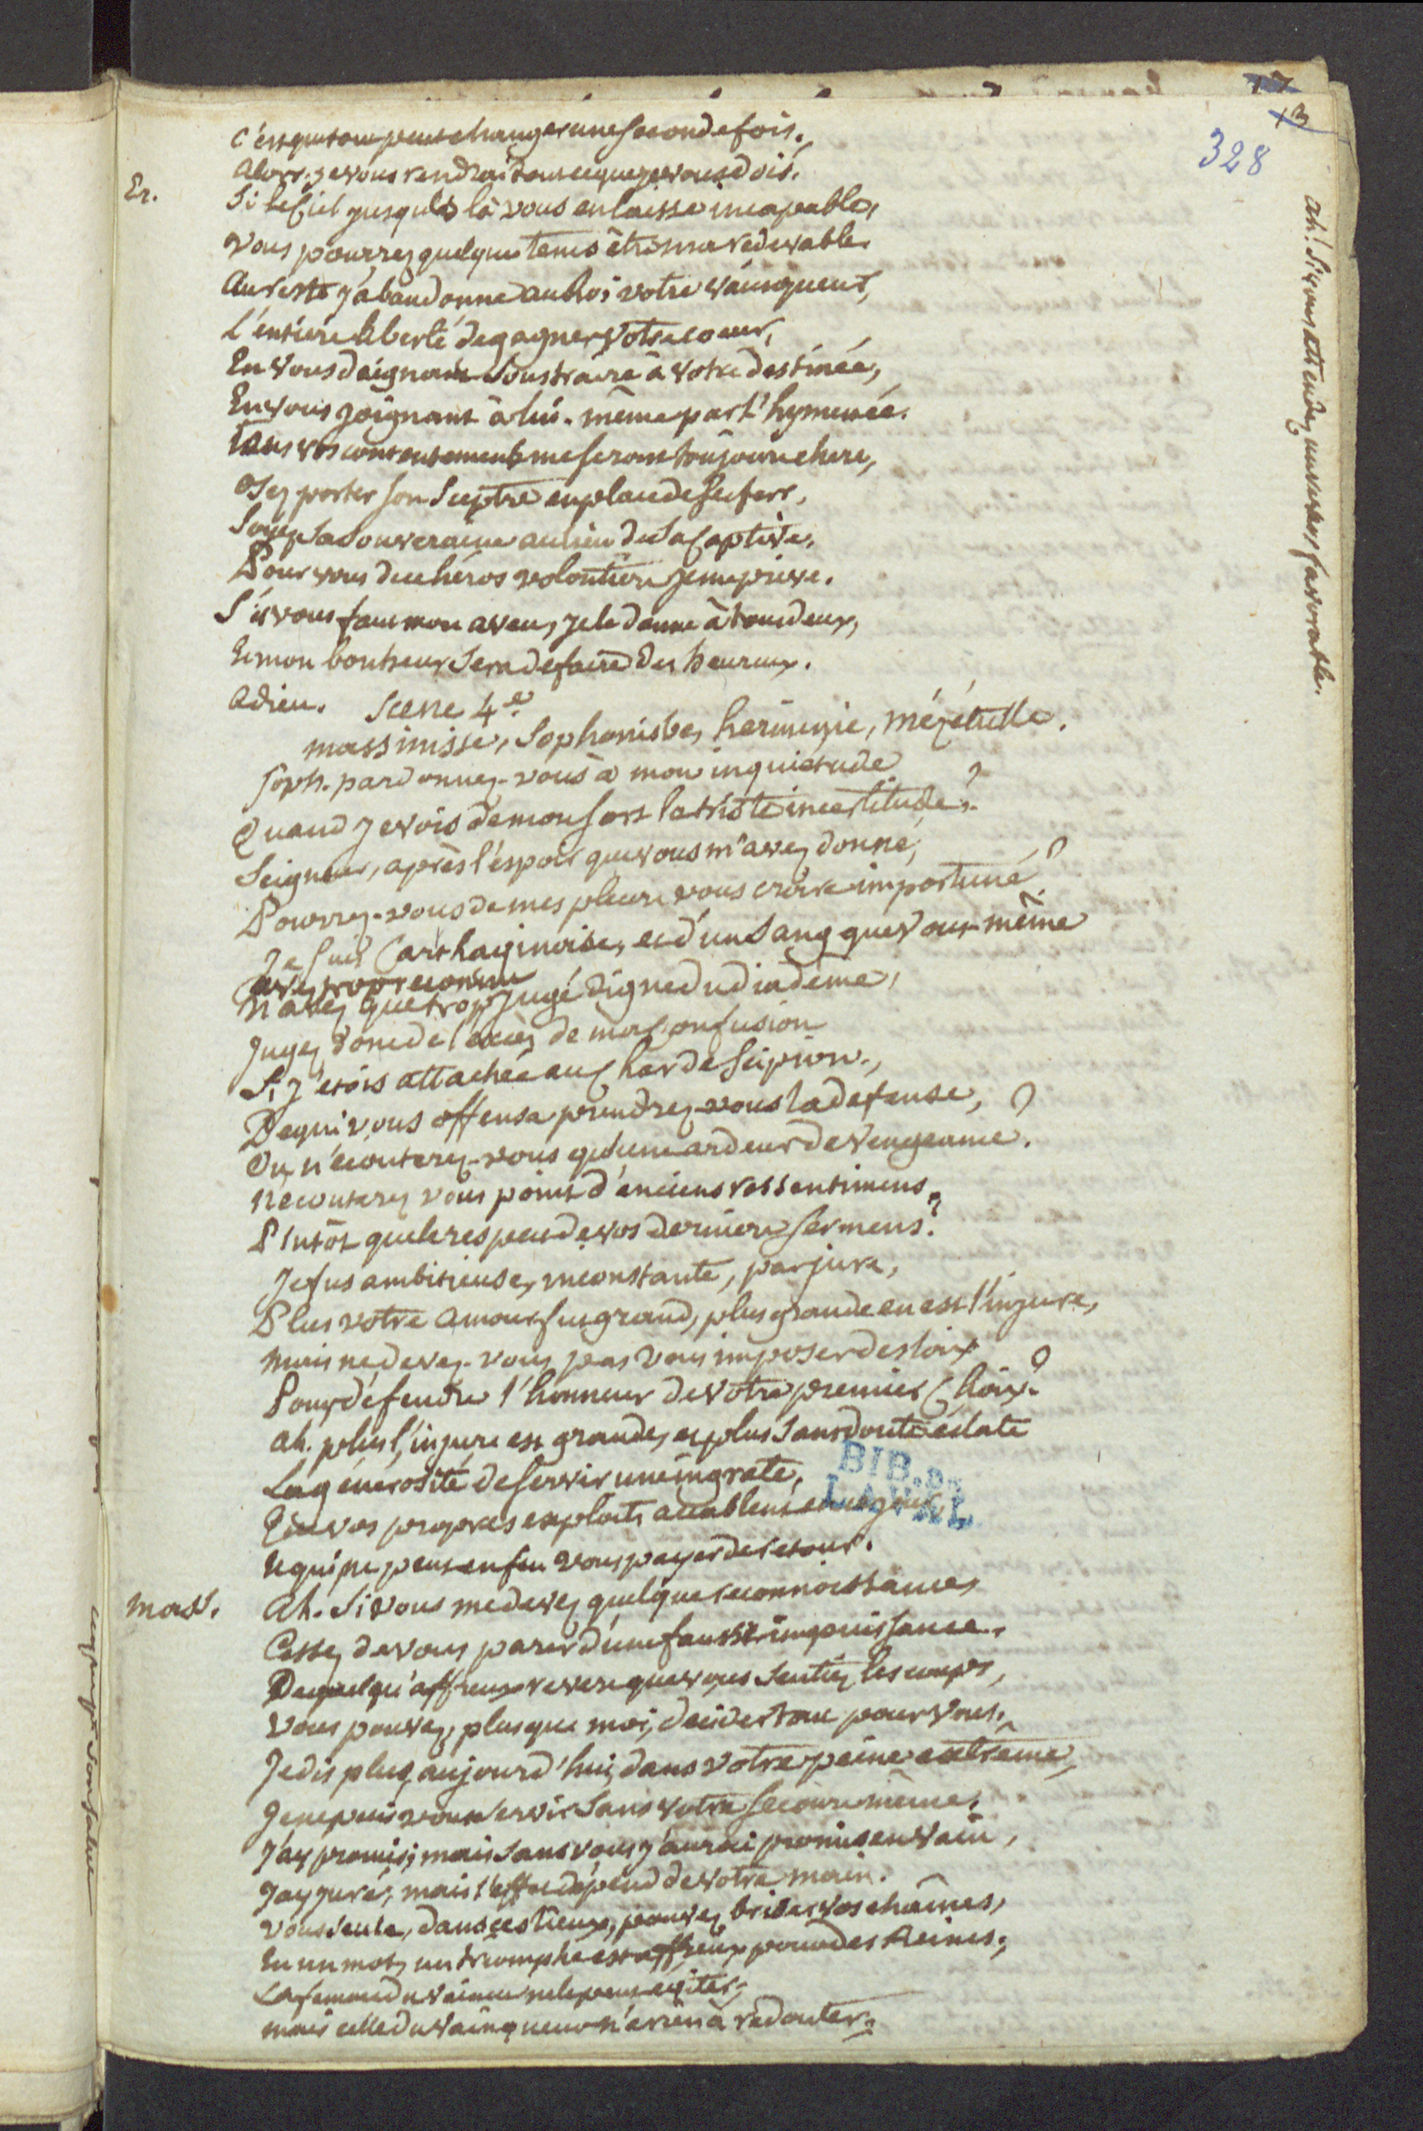 13
328
c'est que tout peut changer une seconde fois.
alors je vous rendrai tout ce que je vous dois.
Er. Si le Ciel jusques là vous en laisse incapable,
vous pourrez quelque tems être ma redevable.
au reste j'abandonne au Roi votre vainqueur,
L'entiere liberté de gagner votre coeur,
En vous daignant soustraire à votre destinée,
En vous joignant à lui-même par l'hymenée.
Tous vos contentemens me seront toujours chers,
osez porter son Sceptre en place de ses fers,
Soyez sa Souveraine au lieu de sa Captive,
Pour vous de ce héros volontiers je me prive.
S'il vous faut mon aveu, je le donne à tous deux,
Et mon bonheur sera de faire des heureux.
adieu. Scene 4e.
massinisse, Sophonisbe, herminie, mézétulle.
Soph. pardonnez-vous à mon inquietude
Quand je vois de mon sort la triste incertitude?
Seigneur, après l'espoir que vous m'avez donné,
Pourrez-vous de mes pleurs vous croire importuné?
Je suis Carthaginoise, et d'un sang que vous-même
avez trop reconnu
N'avez que trop jugé digne du diadême,
Jugez donc de l'excès de ma Confusion
Si j'etois attachée au Char de Scipion.,
De qui vous offensa prendrez-vous la defense,
Ou n'écouterez-vous qu'une ardeur de vengeance?
N'ecouterez vous point d'anciens ressentimens,
Plutôt que le respect de vos derniers sermens?
Je fus ambitieuse, inconstante, parjure,
Plus votre amour fut grand, plus grande en est l'injure,
mais ne devez-vous pas vous imposer des loix
Pour défendre l'honneur de votre premier Choix?
ah. plus l'injure est grande, et plus sans doute éclate
La générosité de servir une ingrate,
Que vos propres exploits accablent
Et qui ne peut enfin vous payer de retour.
mass. Ah. Si vous me devez quelque reconnoissance,
Cessez de vous parer d'une fausse impuissance.
De quelqu'affreux revers que vous sentiez les coups,
vous pouvez, plus que moi, decider tout pour vous.
Je dis plus, aujourd'hui, dans votre peine extrême,
Je ne puis vous servir sans votre secours même,
J'ay promis; mais sans vous j'aurai promis en vain,
J'ay juré; mais l'effet dépend de votre main.
vous seule, dans ces lieux, pouvez briser vos chaînes,
En un mot, un triomphe est affreux pour des Reines;
La femme du vaincu ne le peut eviter;
mais celle du vainqueur n'a rien à redouter.
ah! Si vous attendez un revers favorable.
BIB. DE
LAVAL